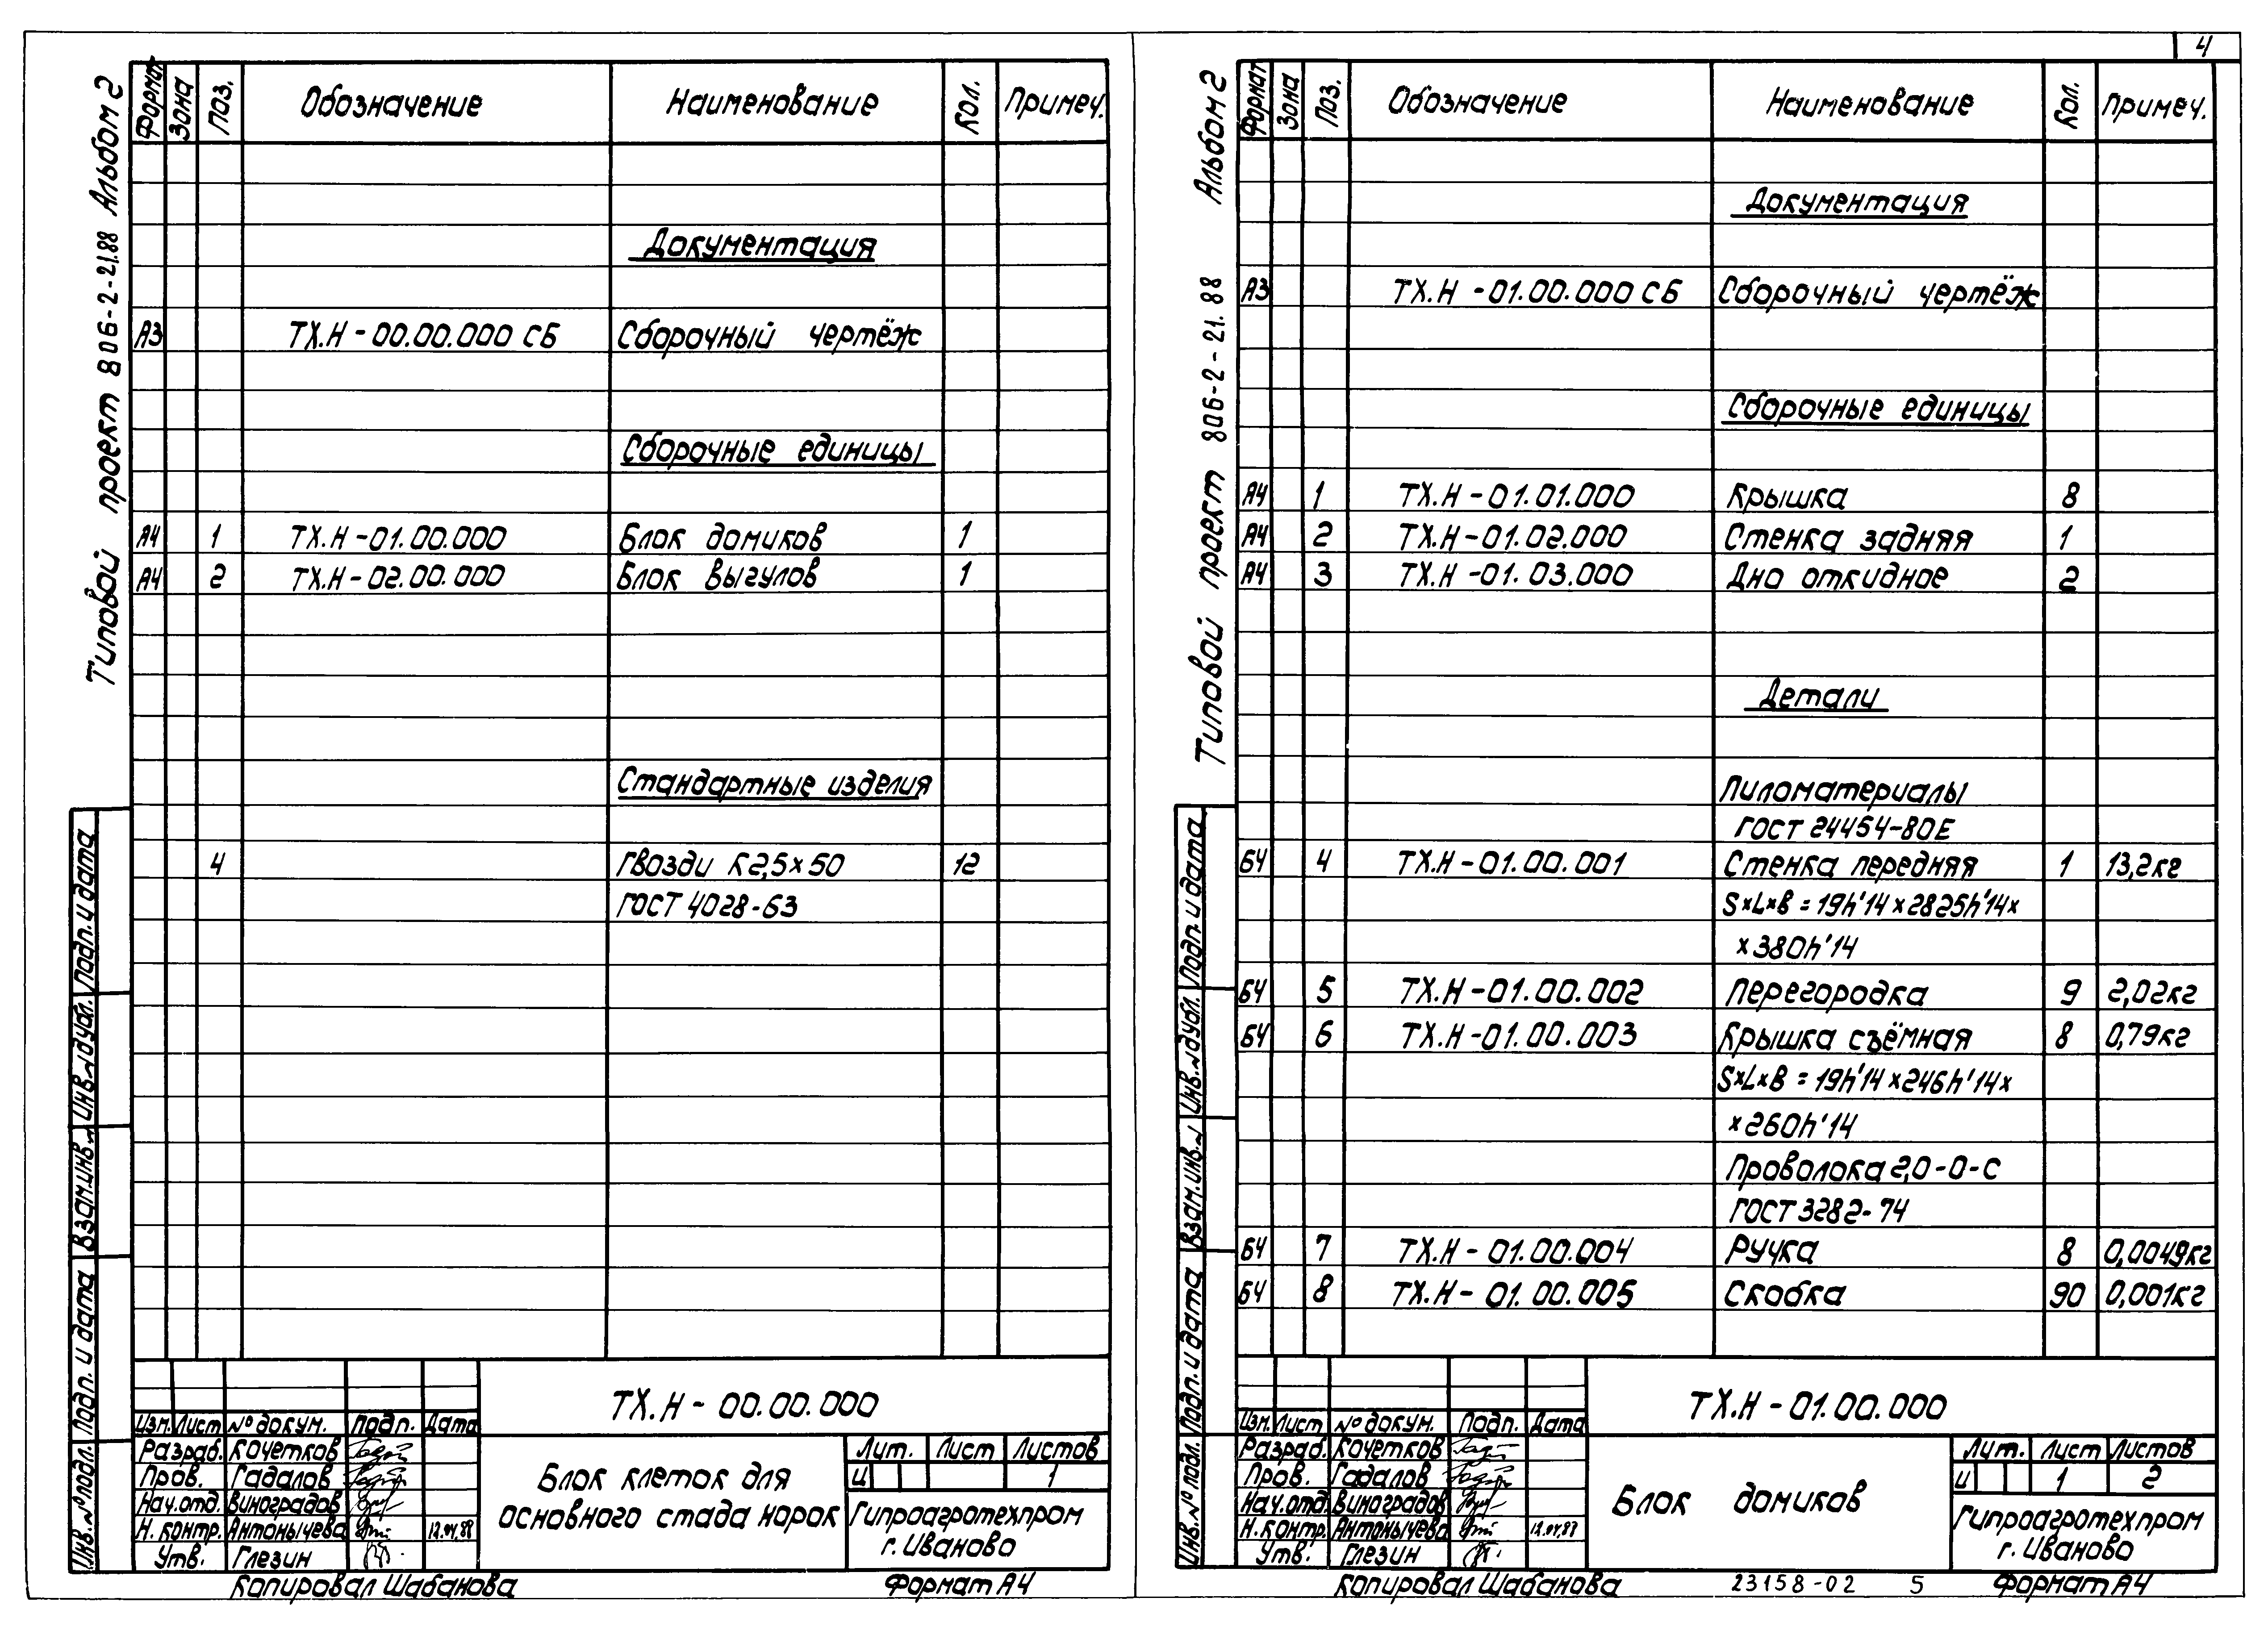 4
Типовой проект 806-2-21.88 Альбом 2
Формат Зона Поз. Обозначение Наименование Кол. Примеч.
Документация
А3 ТХ.Н-00.00.000 СБ Сборочный чертёж
Сборочные единицы
А4 1 ТХ.Н-01.00.000 Блок домиков 1
А4 2 ТХ.Н-02.00.000 Блок выгулов 1
Стандартные изделия
4 Гвозди К2,5×50 12
ГОСТ 4028-63
Инв. № подл. Подп. и дата Взам. инв. № Инв. № дубл. Подп. и дата
ТХ.Н-00.00.000
Изм. Лист № докум. Подп. Дата
Разраб. Кочетков
Пров. Гадалов
Нач.отд. Виноградов
Н. контр. Антонычева 12.04.88
Утв. Глезин
Блок клеток для
основного стада норок
Лит. Лист Листов
И 1
Гипроагротехпром
г. Иваново
Копировал Шабанова Формат А4
Типовой проект 806-2-21.88 Альбом 2
Формат Зона Поз. Обозначение Наименование Кол. Примеч.
Документация
А3 ТХ.Н-01.00.000 СБ Сборочный чертёж
Сборочные единицы
А4 1 ТХ.Н-01.01.000 Крышка 8
А4 2 ТХ.Н-01.02.000 Стенка задняя 1
А4 3 ТХ.Н-01.03.000 Дно откидное 2
Детали
Пиломатериалы
ГОСТ 24454-80Е
БЧ 4 ТХ.Н-01.00.001 Стенка передняя 1 13,2кг
S×L×B = 19h'14×2825h'14×
×380h'14
БЧ 5 ТХ.Н-01.00.002 Перегородка 9 2,02кг
БЧ 6 ТХ.Н-01.00.003 Крышка съёмная 8 0,79кг
S×L×B = 19h'14×246h'14×
×260h'14
Проволока 2,0-О-С
ГОСТ 3282-74
БЧ 7 ТХ.Н-01.00.004 Ручка 8 0,0049кг
БЧ 8 ТХ.Н-01.00.005 Скобка 90 0,001кг
Инв. № подл. Подп. и дата Взам. инв. № Инв. № дубл. Подп. и дата
ТХ.Н-01.00.000
Изм. Лист № докум. Подп. Дата
Разраб. Кочетков
Пров. Гадалов
Нач.отд. Виноградов
Н. контр. Антонычева 12.04.88
Утв. Глезин
Блок домиков
Лит. Лист Листов
И 1 2
Гипроагротехпром
г. Иваново
Копировал Шабанова 23158-02 5 Формат А4